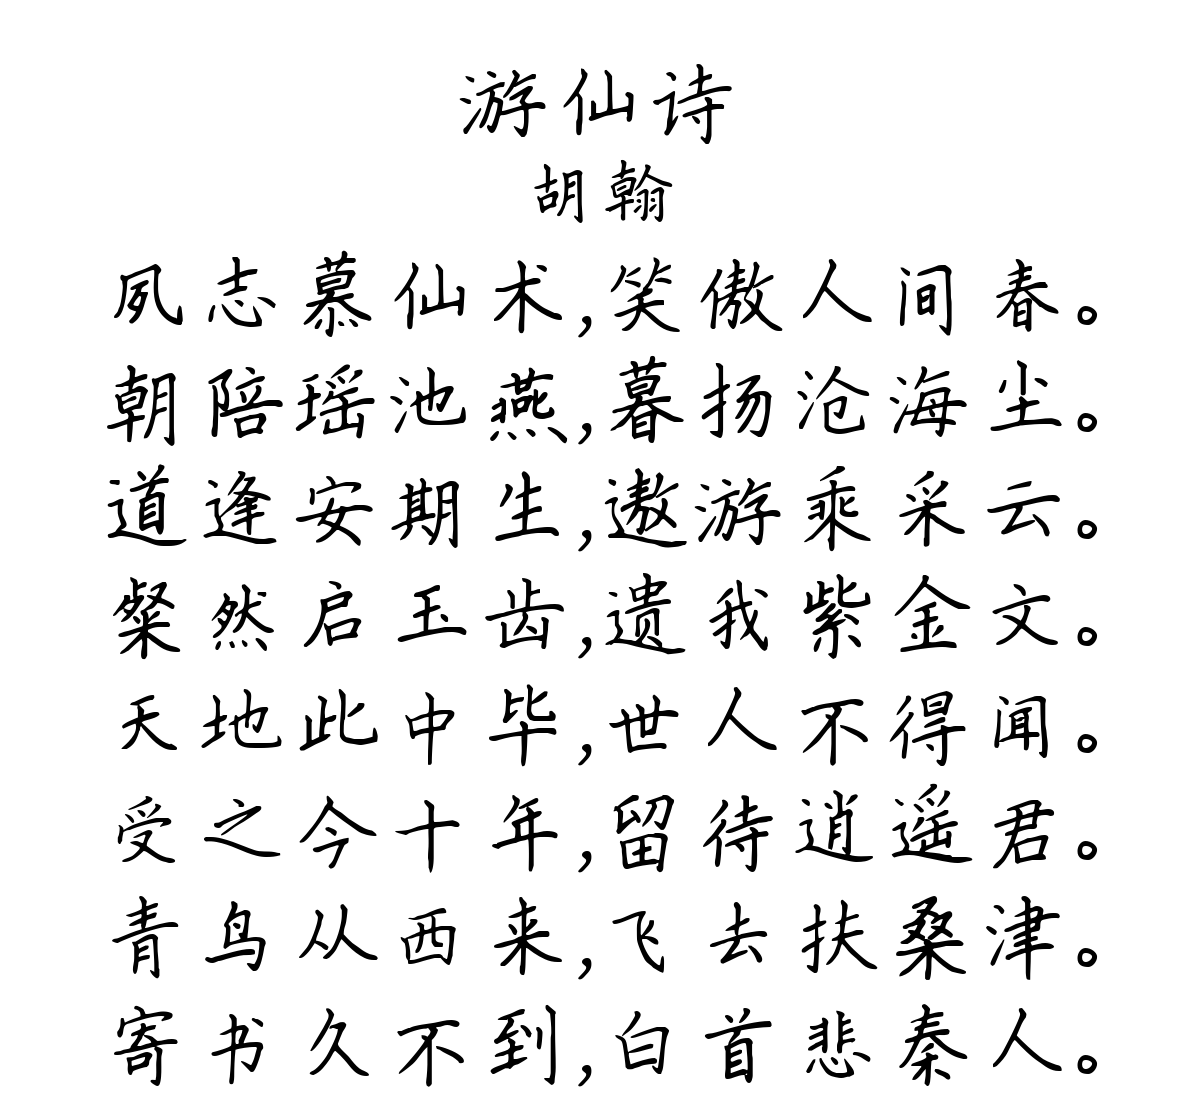 游仙诗
胡翰
夙志慕仙术,笑傲人间春。
朝陪瑶池燕,暮扬沧海尘。
道逢安期生,遨游乘采云。
粲然启玉齿,遗我紫金文。
天地此中毕,世人不得闻。
受之今十年,留待逍遥君。
青鸟从西来,飞去扶桑津。
寄书久不到,白首悲秦人。